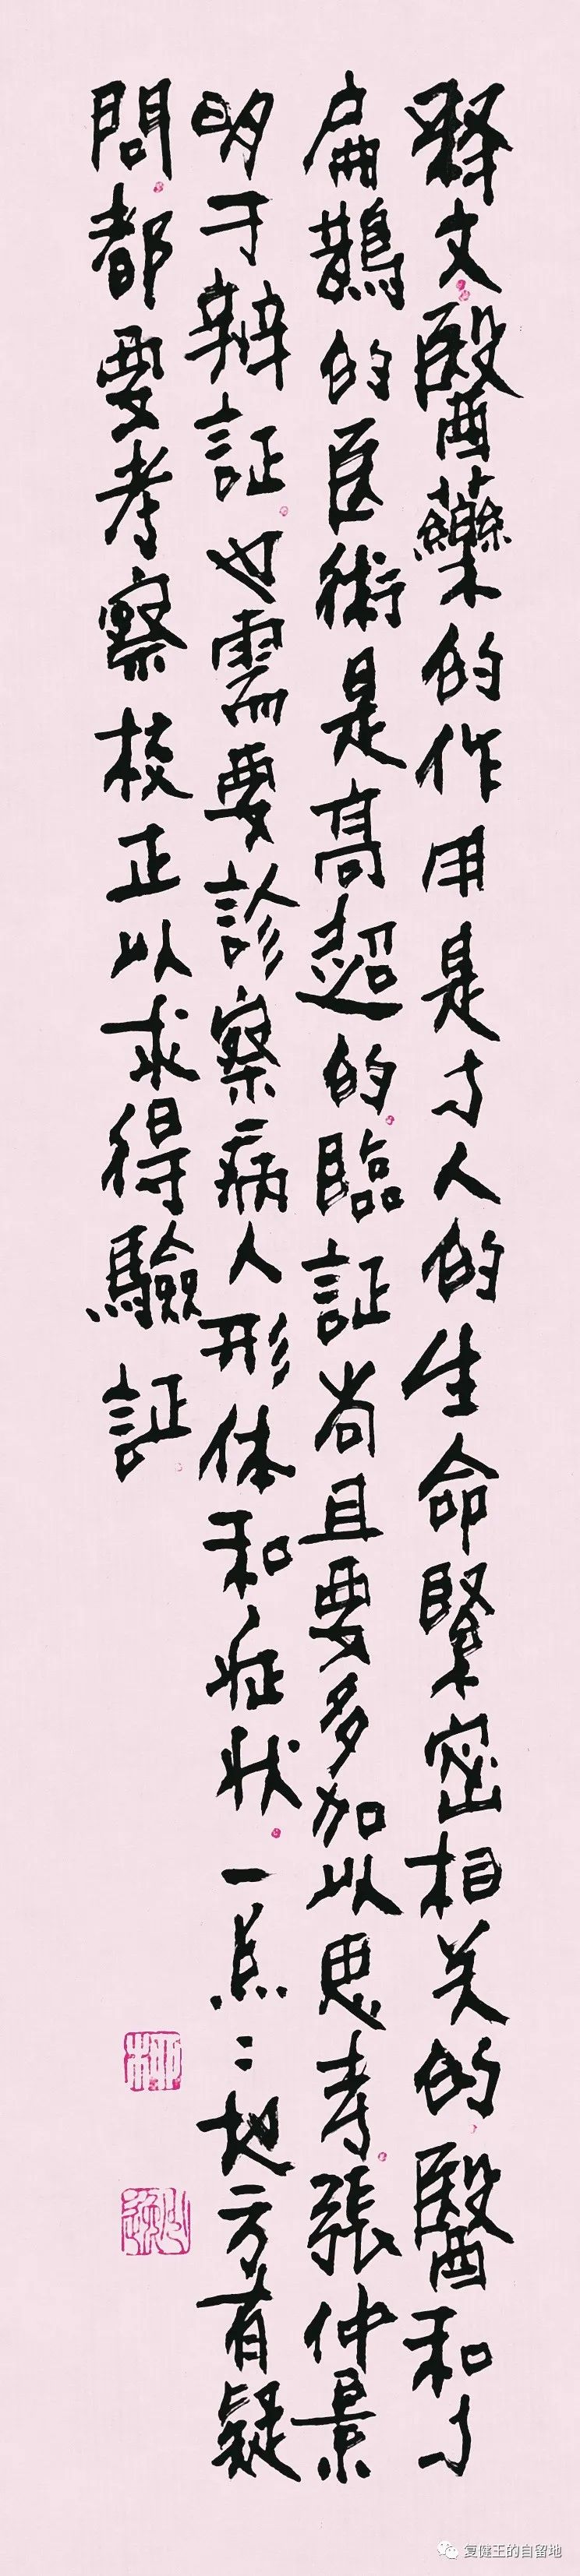 释文醫藥的作用是与人的生命緊密相关的醫和与
扁鵲的医術是高超的臨証尚且要多加以思考張仲景
明于辨証也需要診察病人形体和症状一点〻地方有疑
問都要考察校正以求得驗証
复健王的自留地